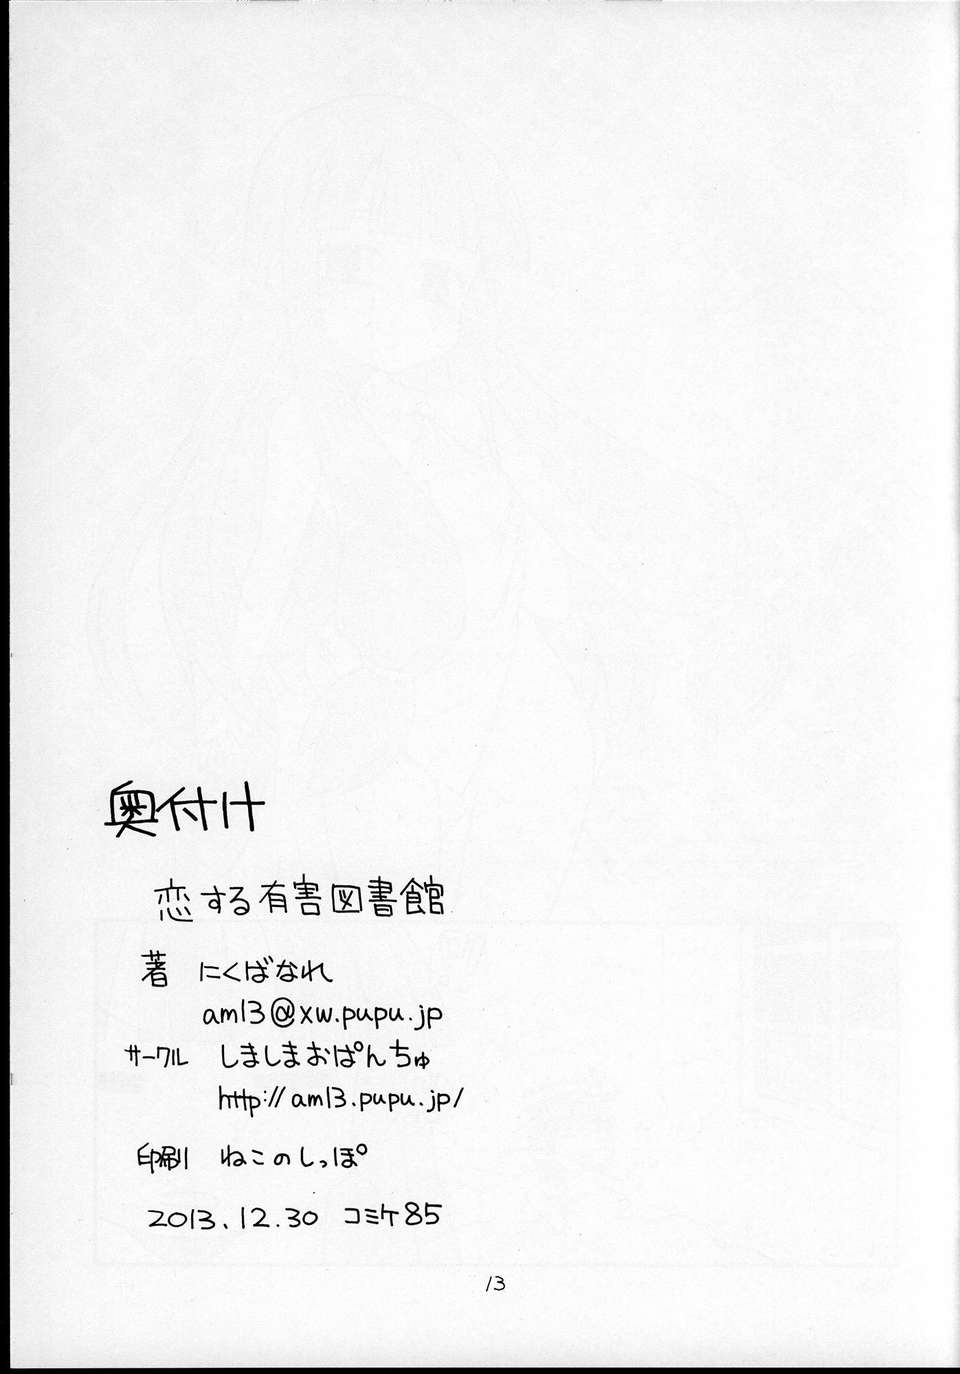 奥付け
恋する有害図書館
著 にくばなれ
am13@xw.pupu.jp
サークル しましまおぱんちゅ
http://am13.pupu.jp/
印刷 ねこのしっぽ
2013.12.30 コミケ85
13